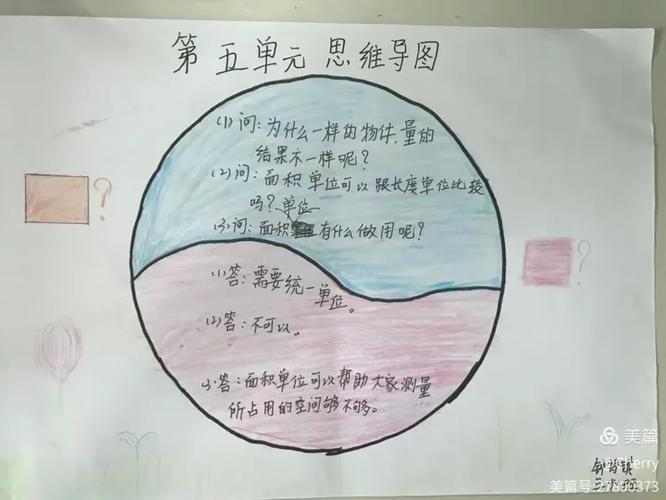 第五单元 思维导图
(1)问:为什么一样的物件,量的
结果不一样呢?
(2)问:面积单位可以跟长度单位比较
吗?
单位
(3)问:面积有什么做用呢?
(1)答:需要统一单位。
(2)答:不可以。
(3)答:面积单位可以帮助大家测量
所占用的空间够不够。
?
?
美篇
@Cherry
美篇号:27890373